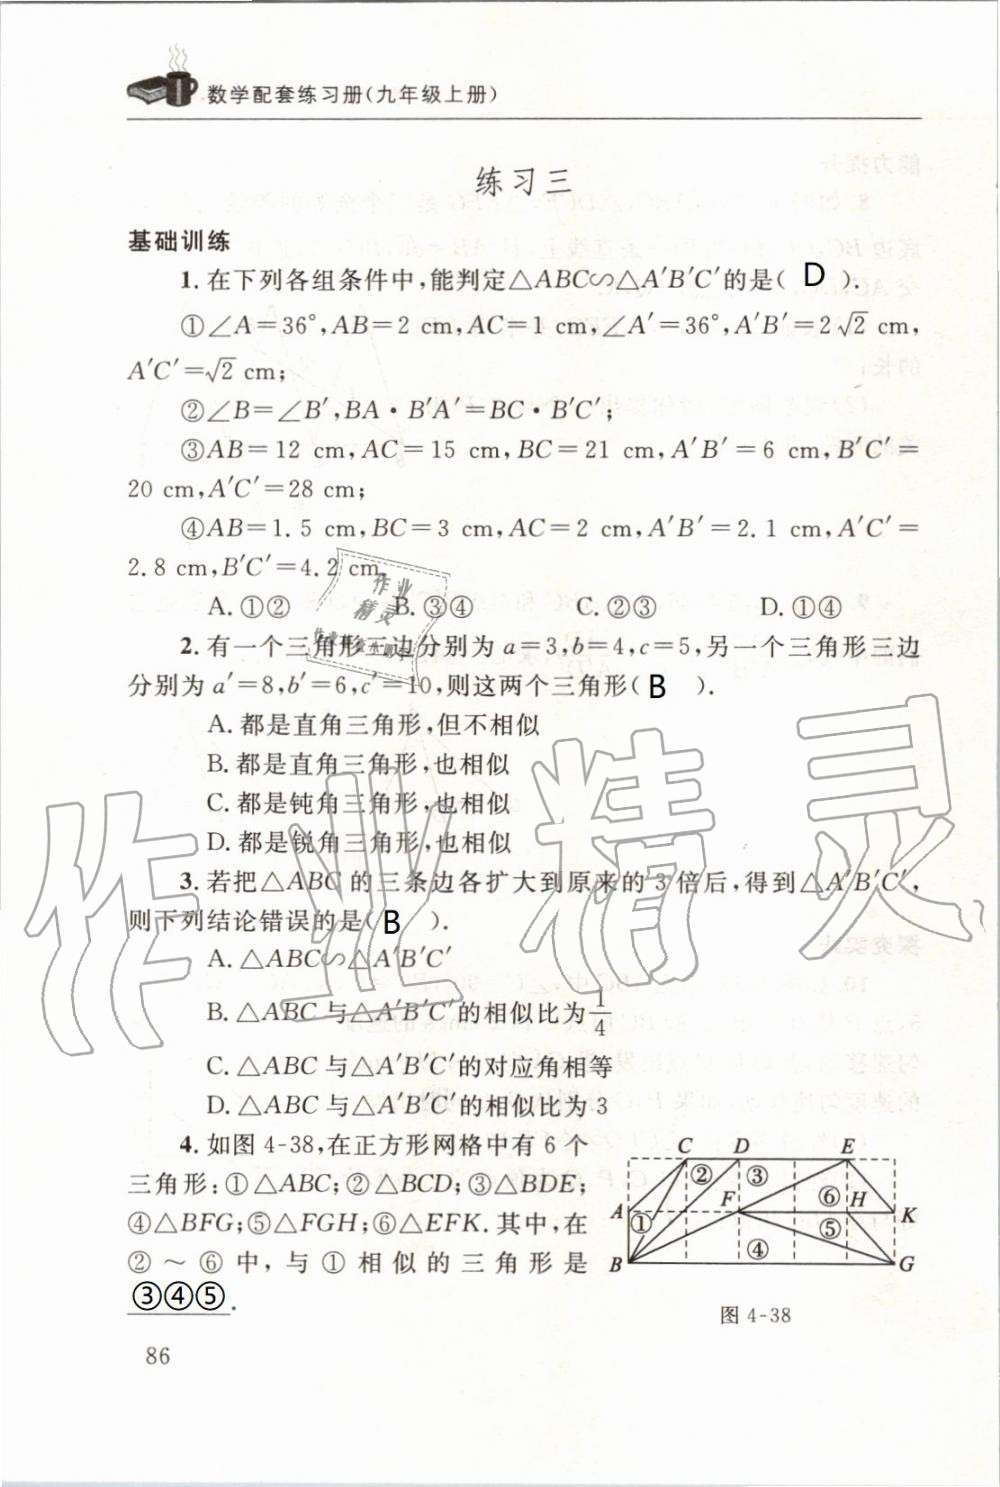 数学配套练习册(九年级上册)
练习三
基础训练
1.在下列各组条件中,能判定△ABC∽△A′B′C′的是( D ).
①∠A=36°,AB=2 cm,AC=1 cm,∠A′=36°,A′B′=2√2 cm,
A′C′=√2 cm;
②∠B=∠B′,BA·B′A′=BC·B′C′;
③AB=12 cm,AC=15 cm,BC=21 cm,A′B′=6 cm,B′C′=
20 cm,A′C′=28 cm;
④AB=1.5 cm,BC=3 cm,AC=2 cm,A′B′=2.1 cm,A′C′=
2.8 cm,B′C′=4.2 cm.
A.①② B.③④ C.②③ D.①④
2.有一个三角形三边分别为a=3,b=4,c=5,另一个三角形三边
分别为a′=8,b′=6,c′=10,则这两个三角形( B ).
A.都是直角三角形,但不相似
B.都是直角三角形,也相似
C.都是钝角三角形,也相似
D.都是锐角三角形,也相似
3.若把△ABC的三条边各扩大到原来的3倍后,得到△A′B′C′,
则下列结论错误的是( B ).
A.△ABC∽△A′B′C′
B.△ABC与△A′B′C′的相似比为1/4
C.△ABC与△A′B′C′的对应角相等
D.△ABC与△A′B′C′的相似比为3
4.如图4-38,在正方形网格中有6个
三角形:①△ABC;②△BCD;③△BDE;
④△BFG;⑤△FGH;⑥△EFK.其中,在
②～⑥中,与①相似的三角形是
③④⑤.
C D E
② ③
A F ⑥ H K
① ⑤
④
B G
图4-38
86
作业精灵
作业
精灵